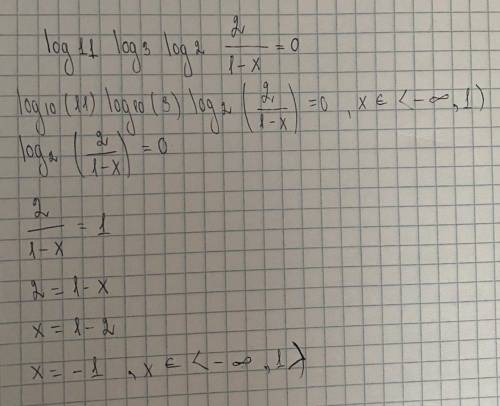 log 11 log 3 log 2 2/(1-x) = 0
log₁₀(11) log₁₀(3) log₂(2/(1-x)) = 0 , x ∈ <-∞, 1)
log₂(2/(1-x)) = 0
2/(1-x) = 1
2 = 1-x
x = 1-2
x = -1 , x ∈ <-∞, 1>